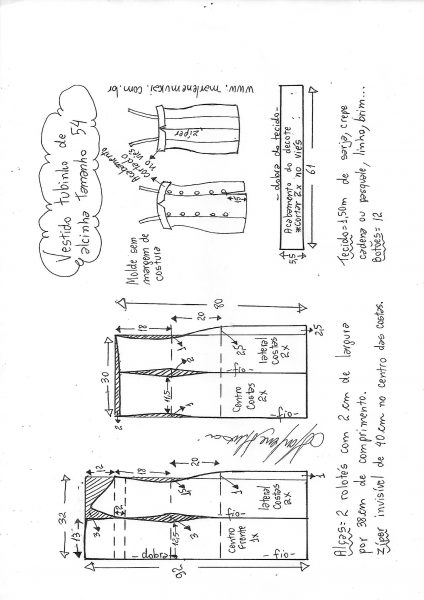 Vestido tubinho de
alcinha tamanho 54
Molde sem
margem de
costura
Acabamento
cortado
no viés
zíper
15
www.marlenemukai.com.br
- dobra do tecido -
Acabamento do decote
*cortar 2x no viés
5,5
61
Tecido = 1,50m de sarja, crepe
cadena ou pasquale, linho, brim...
Botões = 12
32
13
12
18
20
3
2
12,5
3
1,5
1
1
92
dobra
Centro
frente
1x
lateral
Costas
2x
-fio-
-fio-
30
2
18
20
80
11,5
3
2
1
2,5
2,5
Centro
Costas
2x
lateral
Costas
2x
-fio-
-fio-
Alças = 2 rolotês com 2 cm de largura
por 38 cm de comprimento.
zíper invisível de 40 cm no centro das costas.